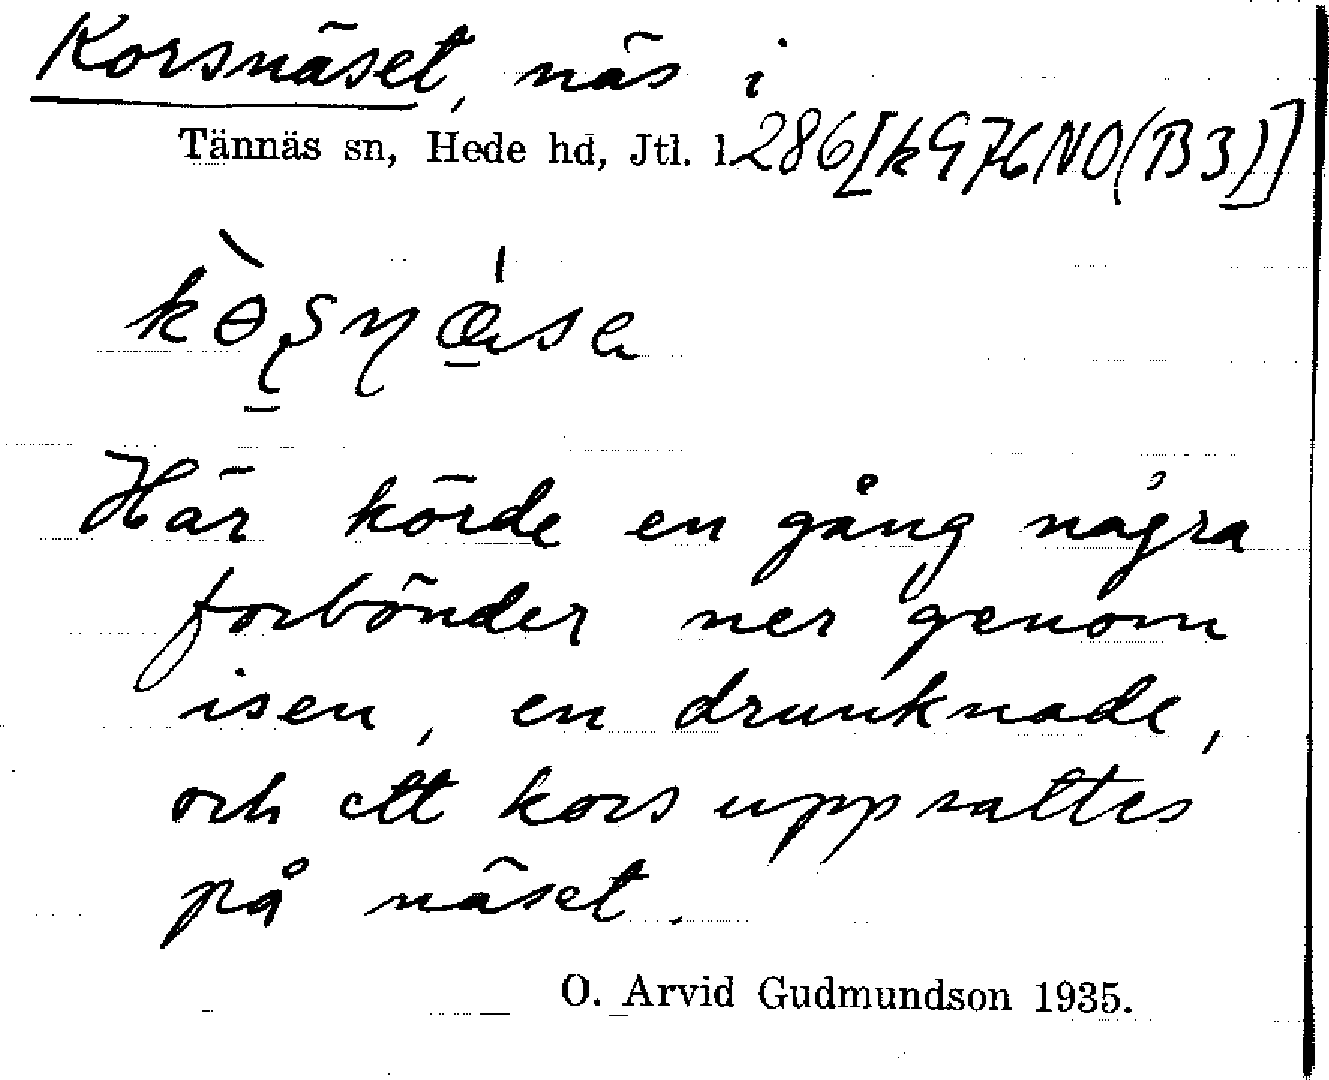 Korsnäset, näs i
Tännäs sn, Hede hd, Jtl. l. 286 [k G 7 K NO (B 3)]
Här körde en gång några
forbönder ner genom
isen, en drunknade,
och ett kors uppsattes
på näset.
O. Arvid Gudmundson 1935.